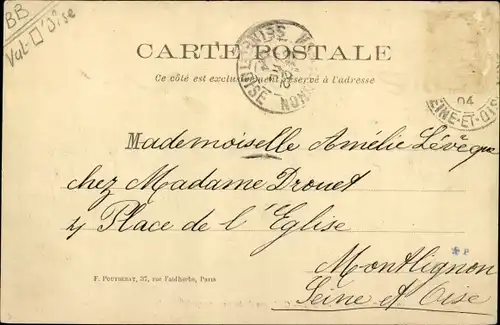 BB
Val-D'Oise
CARTE POSTALE
Ce côté est exclusivement réservé à l'adresse
04
SEINE-ET-OISE
Mademoiselle Amélie Lévêque
chez Madame Drouet
4 Place de l'Eglise
Montlignon
Seine et Oise
F. Poutherat, 37, rue Faidherbe, Paris